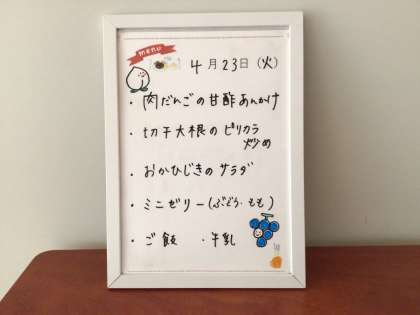 menu
4月23日(火)
・肉だんごの甘酢あんかけ
・切干大根のピリカラ
炒め
・おかひじきのサラダ
・ミニゼリー(ぶどう・もも)
・ご飯 ・牛乳